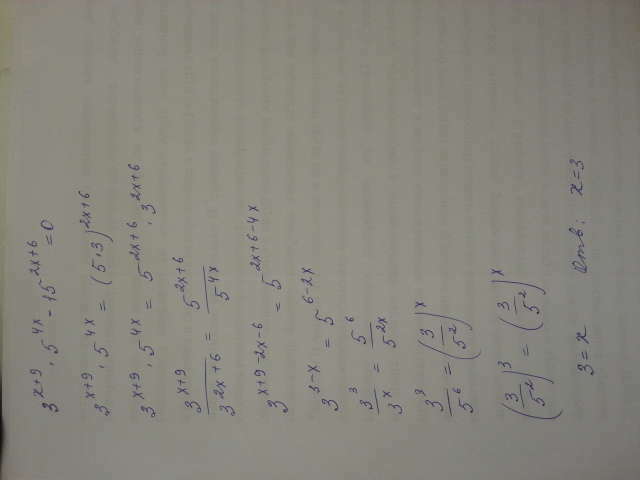 3^{x+9} · 5^{4x} - 15^{2x+6} = 0
3^{x+9} · 5^{4x} = (5·3)^{2x+6}
3^{x+9} · 5^{4x} = 5^{2x+6} · 3^{2x+6}
\frac{3^{x+9}}{3^{2x+6}} = \frac{5^{2x+6}}{5^{4x}}
3^{x+9-2x-6} = 5^{2x+6-4x}
3^{3-x} = 5^{6-2x}
\frac{3^3}{3^x} = \frac{5^6}{5^{2x}}
\frac{3^3}{5^6} = (\frac{3}{5^2})^x
(\frac{3}{5^2})^3 = (\frac{3}{5^2})^x
3 = x Отв: x = 3